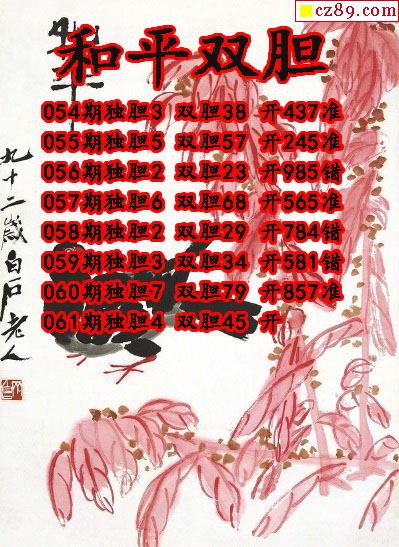 cz89.com
和平双胆
054期独胆3 双胆38 开437准
055期独胆5 双胆57 开245准
056期独胆2 双胆23 开985错
057期独胆6 双胆68 开565准
058期独胆2 双胆29 开784错
059期独胆3 双胆34 开581错
060期独胆7 双胆79 开857准
061期独胆4 双胆45 开
九十二岁白石老人